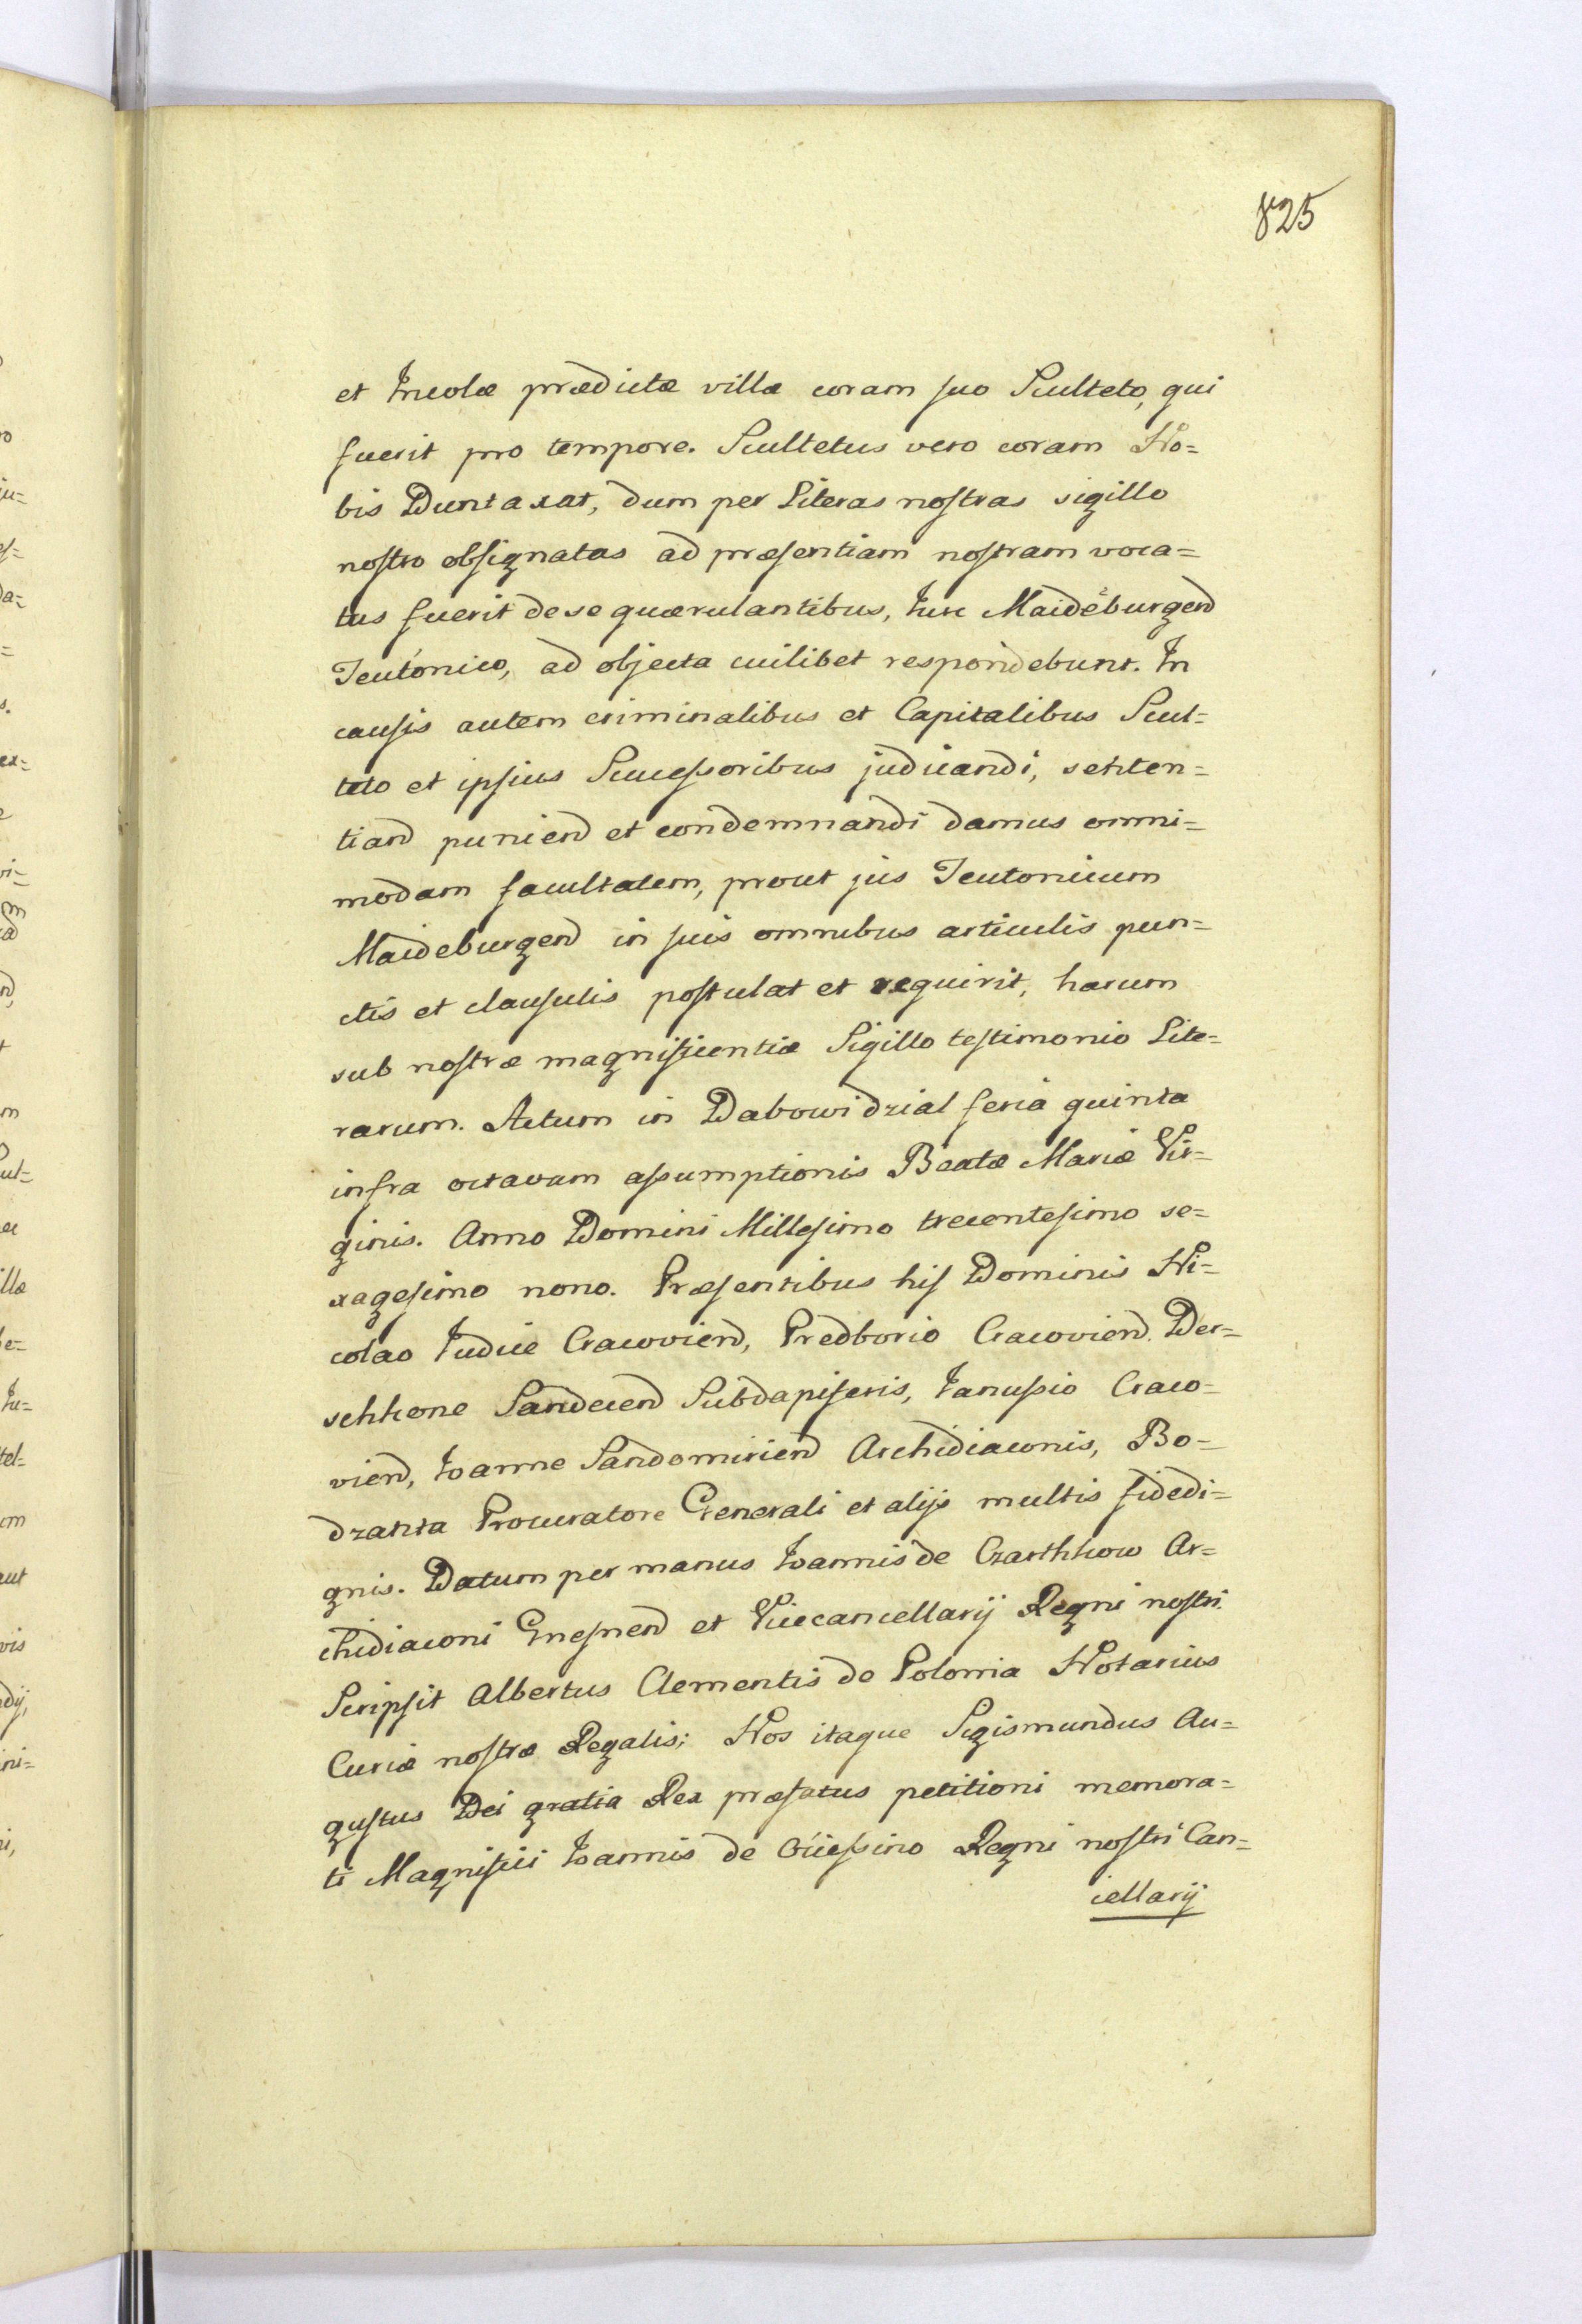 825
et Incolæ prædictæ villæ coram suo Sculteto, qui
fuerit pro tempore. Scultetus vero coram No=
bis Duntaxat, dum per Literas nostras sigillo
nostro obsignatas ad præsentiam nostram voca=
tus fuerit de se quærulantibus, Jure Maideburgen̄
Teutonico, ad objecta cuilibet respondebunt. In
causis autem criminalibus et Capitalibus Scul=
teto et ipsius Successoribus judicandi, senten=
tian̄ punien̄ et condemnandi damus omni=
modam facultatem, prout jus Teutonicum
Maideburgen̄ in suis omnibus articulis pun=
ctis et clausulis postulat et requirit, harum
sub nostræ magnificentiæ Sigillo testimonio Lite=
rarum. Actum in Dabowidzial feria quinta
infra octavam assumptionis Beatæ Mariæ Vir=
ginis. Anno Domini Millesimo trecentesimo se=
xagesimo nono. Præsentibus his Dominis Ni=
colao Judice Cracovien̄, Predborio Cracovien̄. Der=
schkone Sandecen̄ Subdapiferis, Janussio Craco=
vien̄, Joanne Sandomirien̄ Archidiaconis, Bo=
dzanta Procuratore Generali et alijs multis fidedi=
gnis. Datum per manus Joannis de Czarthkow Ar=
chidiaconi Gnesnen̄ et Vicecancellarij Regni nostri.
Scripsit Albertus Clementis de Polonia Notarius
Curiæ nostræ Regalis; Nos itaque Sigismundus Au=
gustus Dei gratia Rex præfatus petitioni memora=
ti Magnifici Joannis de Ociessino Regni nostri Can=
cellarij